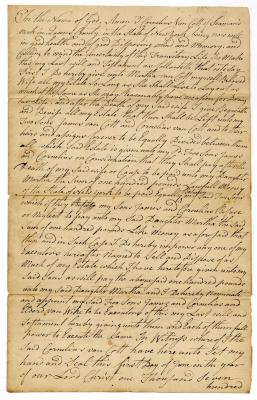 In the Name of God, Amen I Cornelius Van Cott of
in Queens County in the State of New York being now well
in good health and of Sound and Memory, and
calling to mind the uncertainty of this Transitory Life Do Make
this my Last Will and Testament in
first I Do hereby give unto Martha van Cott my well Beloved
Wife all my Estate So Long as She Shall live
During her
Life and after the Death of my said wife I give
and Devise all my Estate that then Shall be Left unto my
Two Sons James van Cott and Cornelius van Cott and to there
heirs and assigns forever to be Equally Divided between them
which said Estate is given unto my Two Sons James
and Cornelius on Consideration that they Shall pay after the
Death of my said wife in Case She
Martha the Sum of one hundred pounds Lawful Money
of the State of New York to be paid by my said Two Sons
if my Sons James and Cornelius Refuse
or Neglect to pay unto my said Daughter Martha the said
Sum of one hundred pounds Like Money as aforesaid that
then and in Such Case I Do hereby impower any one of my
Executors hereafter Named to Sell and Dispose of as
Much of my Estate which I have heretofore given unto my
said Sons as will pay the one hundred pounds
unto my said Daughter Martha and I Do hereby Nominate
and appoint my said Two Sons James and Cornelius and
Eldord van Wike to be Executors of this my Last will and
Testament hereby giving unto them and Each of them full
power to Execute the Same In Witness whereof I the
said Cornelius van Cott have here unto Set my
hand and Seal this first Day of June in the year
of our Lord Christ one Thousand Seven
hundred